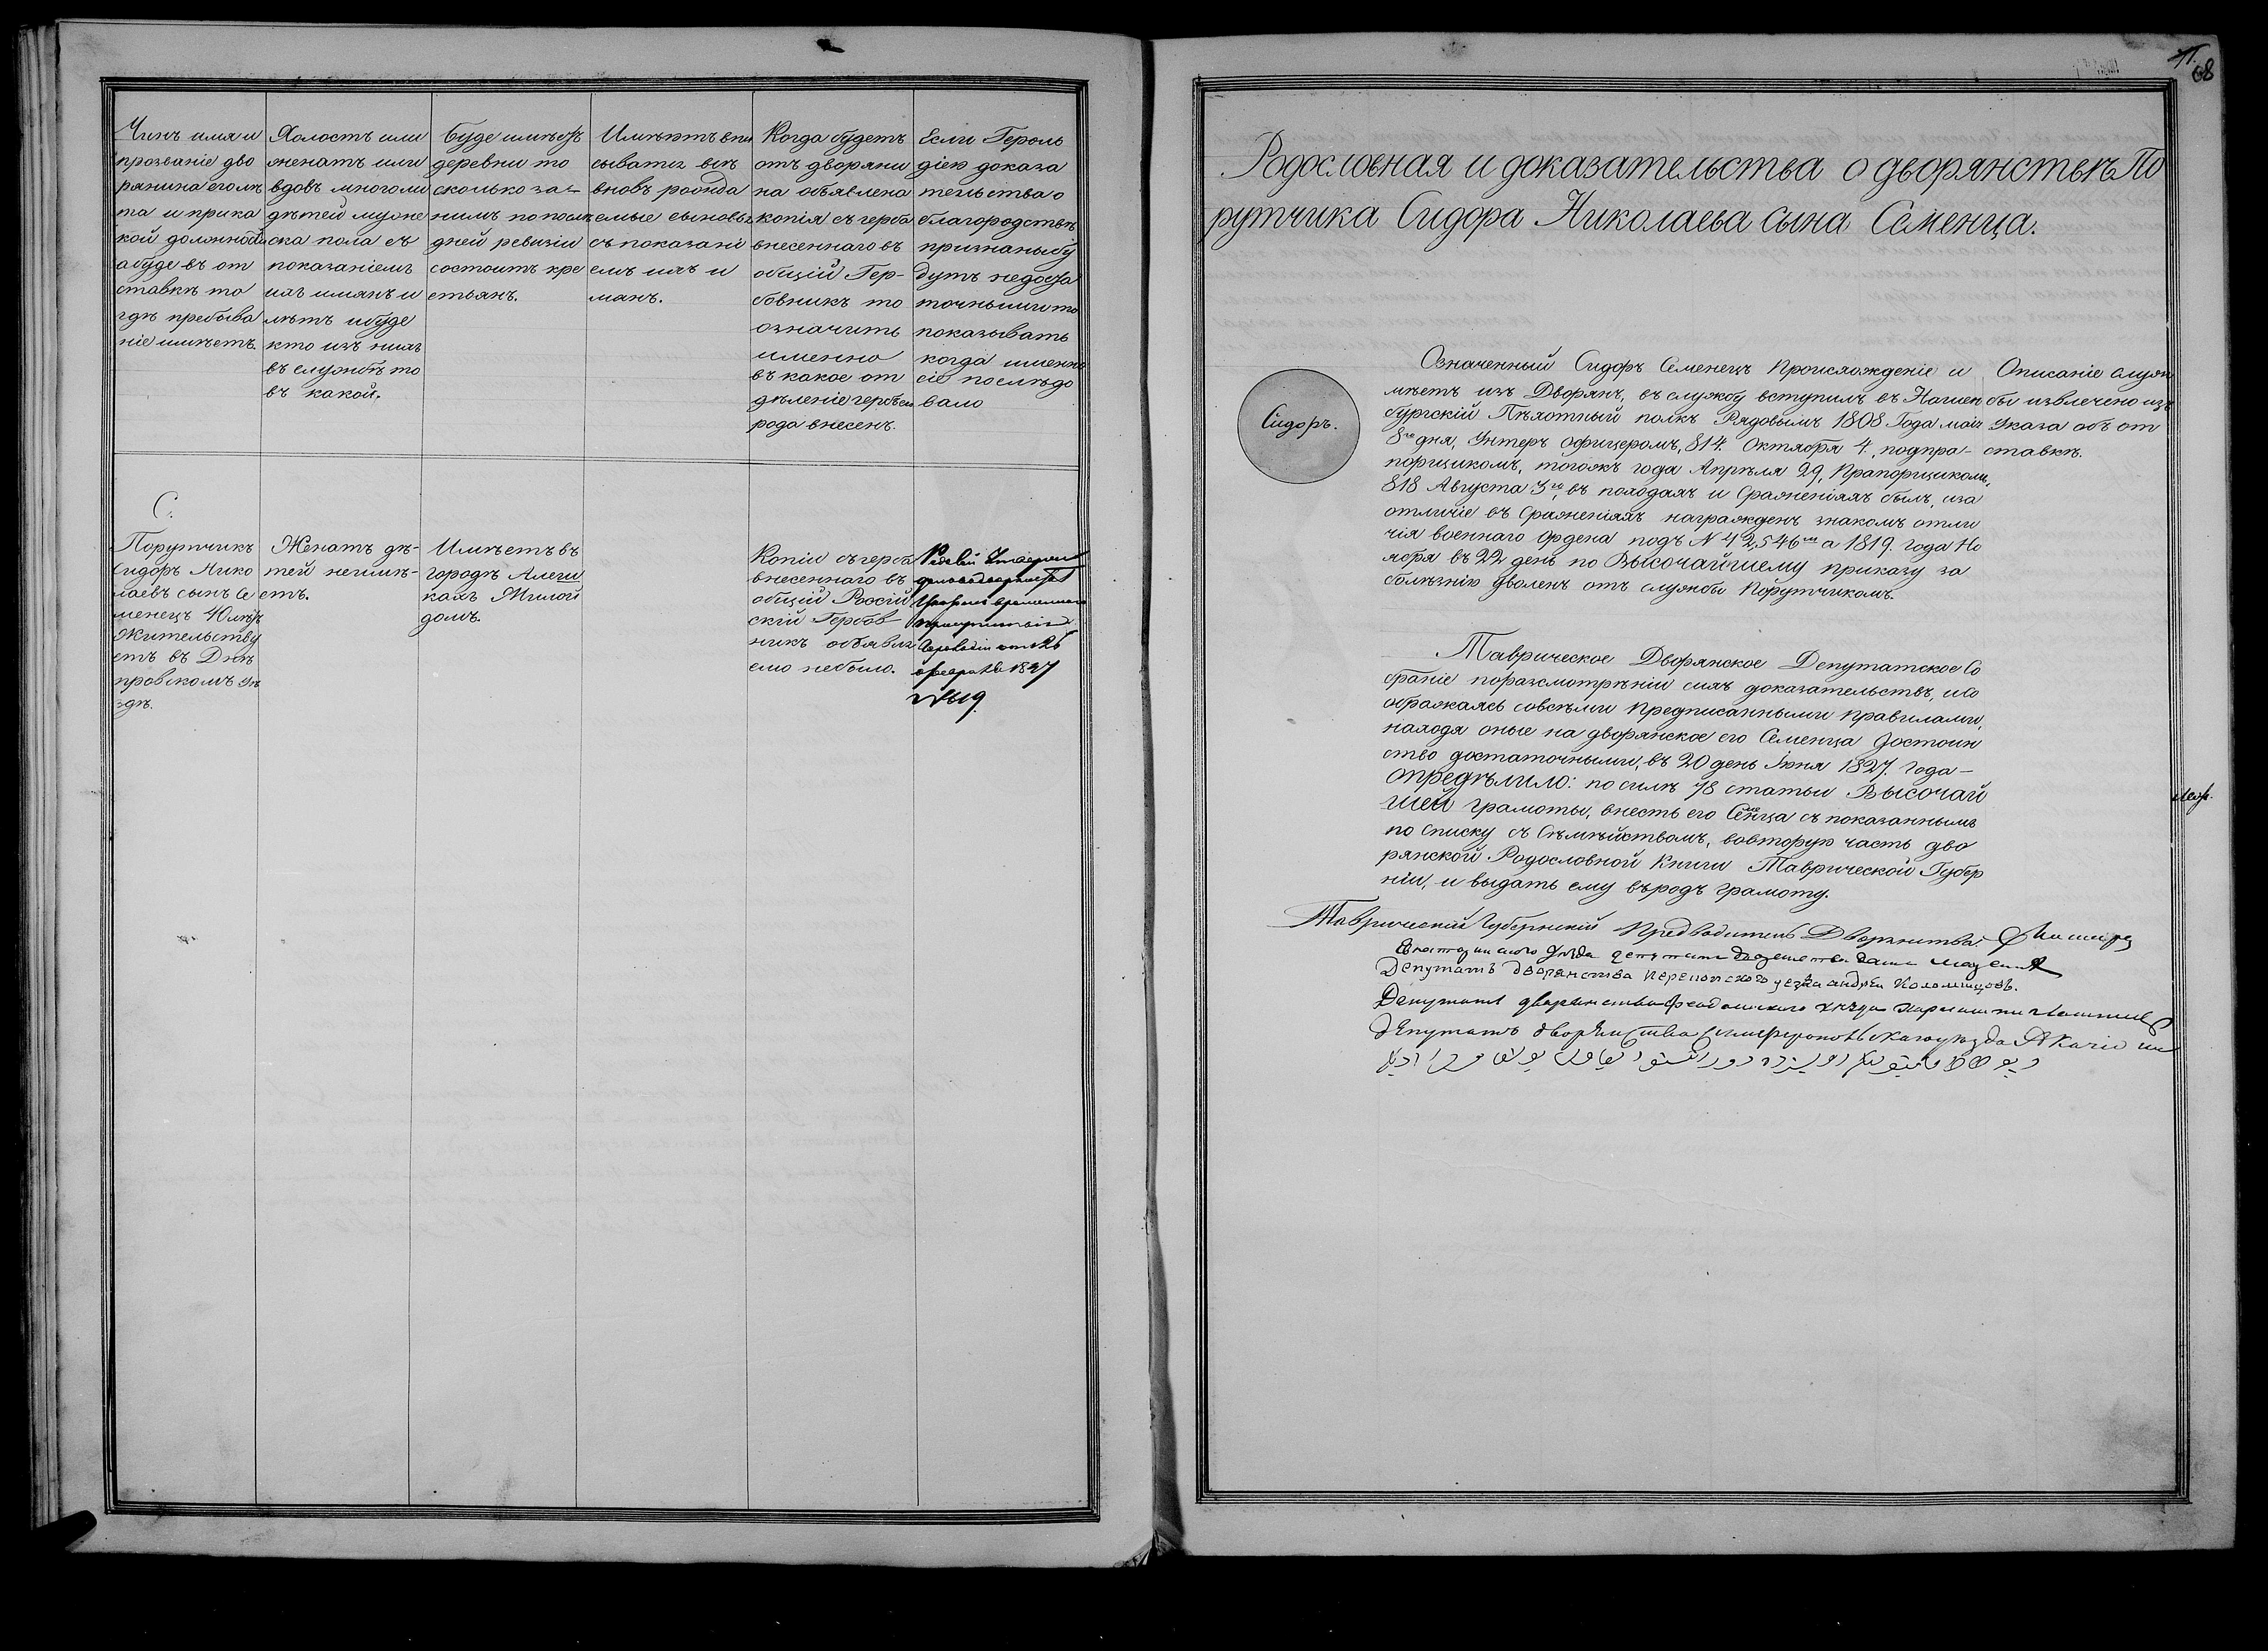 68
Чинъ имя и
прозваніе дво
рянина его лѣ
та и при ка
кой должности
а буде въ от
ставкѣ то
гдѣ пребыва
ніе имѣетъ.
Холостъ или
женатъ или
вдовъ много ли
дѣтей муже
ска пола съ
показаніемъ
ихъ имянъ и
лѣтъ и буде
кто изъ нихъ
въ службѣ то
въ какой.
Буде имѣетъ
деревни то
сколько за-
нимъ по послѣ
дней ревизіи
состоитъ кре
стьянъ.
Имѣютъ впи
сыватся всѣ
вновь рожда
емые сыновья
съ показані
емъ ихъ и
мянъ.
Когда будетъ
отъ дворяни
на объявлена
копія съ герба
внесеннаго въ
общій Гер-
бовникъ то
означить
именно
въ какое от
дѣленіе гербъ его
рода внесенъ.
Если Героль
діею доказа
тельства о
благородствѣ
признаны бу
дутъ недоста
точными то
показывать
когда именно
сіе послѣдо
вало
С.
Порутчикъ
Сидоръ Нико
лаевъ сынъ Се
менецъ 40 лѣтъ
Жительству
етъ въ Днѣ
провскомъ уѣ
здѣ.
Женатъ дѣ-
тей неимѣ-
етъ.
Имѣетъ въ
городѣ Алеш
кахъ Жилой
домъ.
Копіи съ герба
внесеннаго въ
общій Россій
скій Гербов-
никъ объявля
емо небыло.
временнаго
присутствія
Герольдіи отъ 26
февраля 1847
№ 619.
Родословная и доказательства о дворянствѣ По
рутчика Сидора Николаева сына Семенца.
Сидоръ.
Означенный Сидоръ Семенецъ Происхожденіе и
мѣетъ изъ Дворянъ, въ службу вступилъ въ Нашен
бургскій Пѣхотный полкъ Рядовымъ 1808 Года маія
8го дня, Унтеръ офицеромъ, 814. Октября 4, подпра-
порщикомъ, тогожъ года Апрѣля 29, Прапорщикомъ,
818 Августа 3го, въ походахъ и Сраженіяхъ былъ, и за
отличіе въ Сраженіяхъ награжденъ знакомъ отли
чія военнаго Ордена подъ N 42,546мъ а 1819. года Но
ября въ 22 день по Высочайшему приказу за
болѣзнію Уволенъ отъ службы Порутчикомъ.
Описаніе служ
бы извлечено изъ
Указа объ от
ставкѣ.
Таврическое Дворянское Депутатское Со
браніе поразсмотрѣніи сихъ доказательствъ, и Со
ображаясь совсѣми Предписанными правилами,
находя оные на дворянское его Семенца достоин
ство достаточными, въ 20 день Іюня 1827. года-
опредѣлило: по силѣ 78 статьи Высочай
шей грамоты, внесть его Семенца съ показаннымъ
по Списку съ Сѣмѣйствомъ, вовторую часть дво
рянской Родословной Книги Таврической Губер
ніи, и выдать ему въродъ грамоту.
Таврическій Губернскій Предводитель Дворянства
Депутатъ дворянства Перекопского уезда андрей Коломийцовъ.
Депутатъ дворянства Феодосійского уѣзда
Депутатъ дворянства Симферопольскаго уѣзда